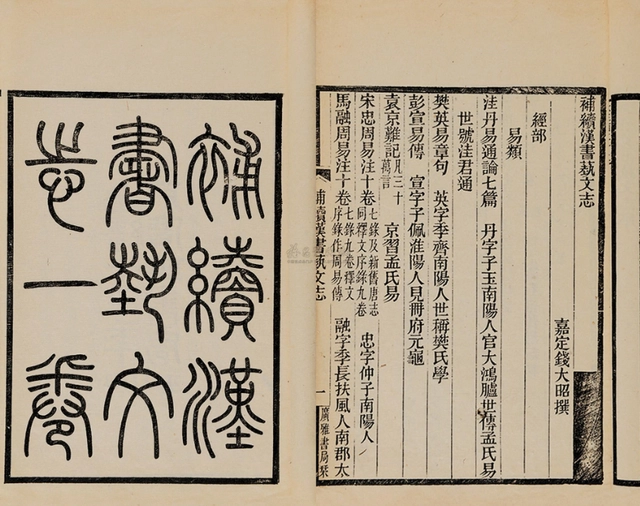 補續漢
書藝文
志一卷
補續漢書蓺文志
嘉定錢大昭撰
經部
易類
洼丹易通論七篇 丹字子玉南陽人官大鴻臚世傳孟氏易
世號洼君通
樊英易章句 英字季齊南陽人世稱樊氏學
彭宣易傳 宣字子佩淮陽人見冊府元龜
袁京難記凡三十萬言 京習孟氏易
宋忠周易注十卷七錄及新舊唐志同釋文序錄九卷 忠字仲子南陽人
馬融周易注十卷七錄九卷釋文序錄作周易傳 融字季長扶風人南郡太
補續漢書蓺文志 一 廣雅書局栞